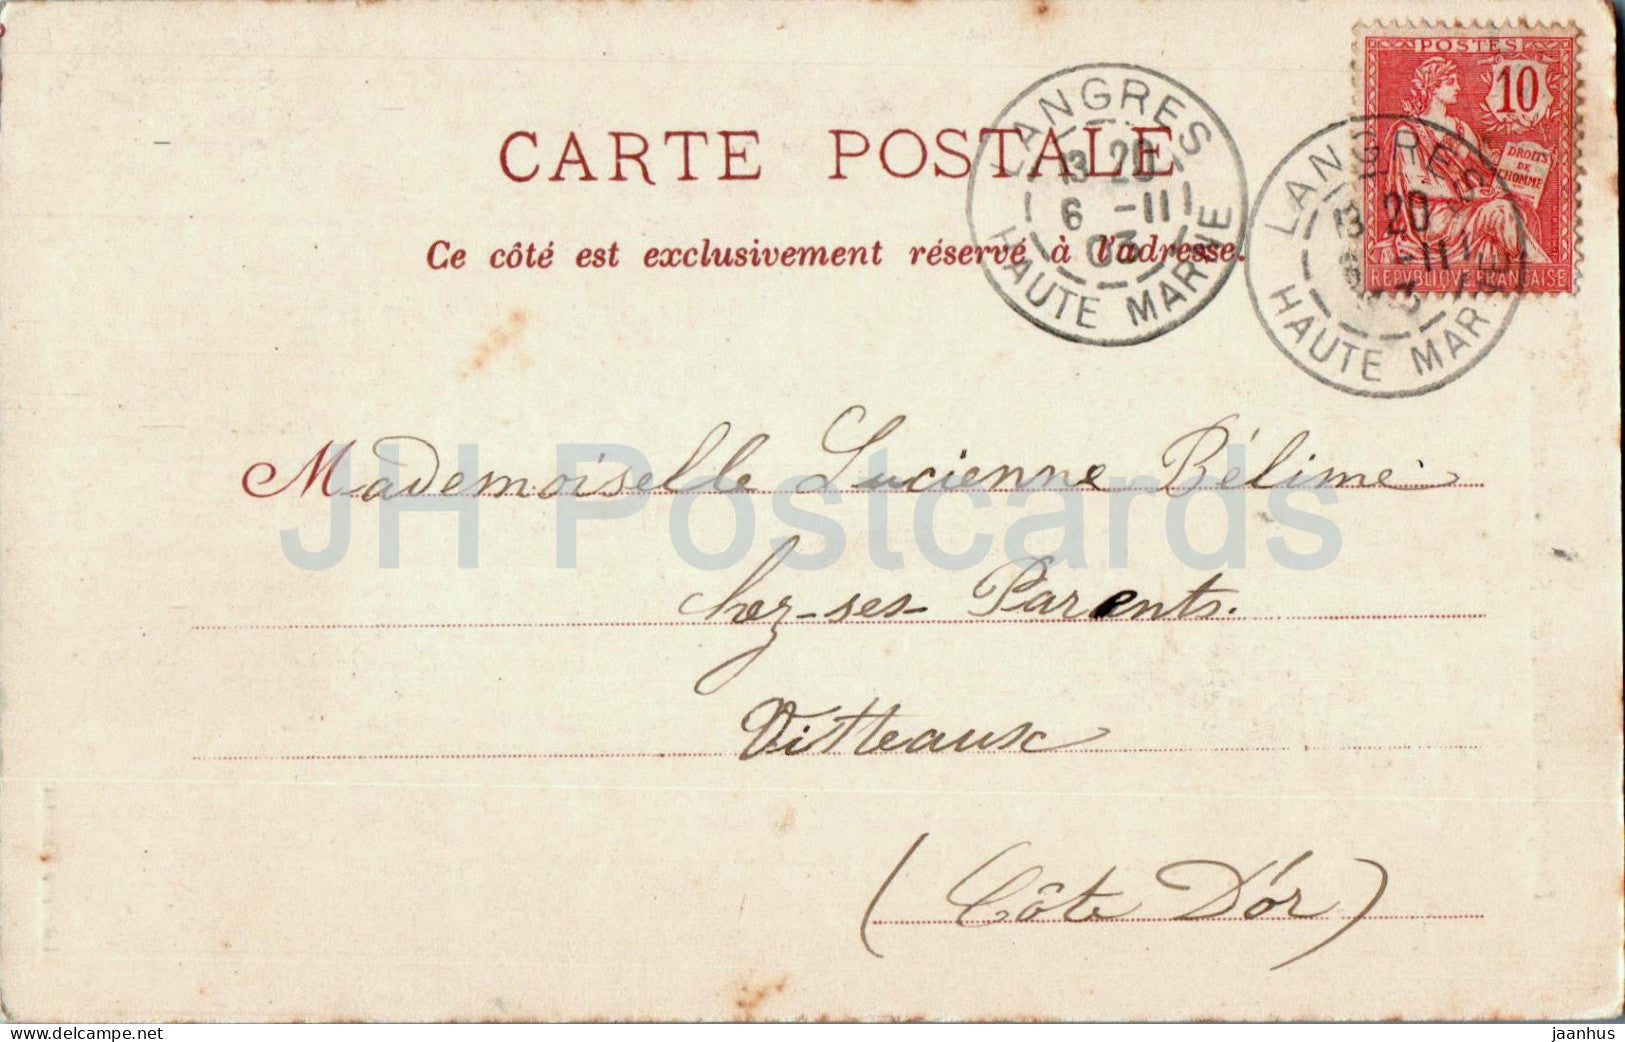 POSTES
10
DROITS
DE
L'HOMME
REPVBLIQVE FRANÇAISE
LANGRES
13 20
6 -11
03
HAUTE MARNE
LANGRES
13 20
6 -11
03
HAUTE MARNE
CARTE POSTALE
Ce côté est exclusivement réservé à l'adresse.
Mademoiselle Lucienne Bélime
chez-ses-Parents.
Vitteaux
(Côte D'or)
JH Postcards
delcampe.net
jaanhus